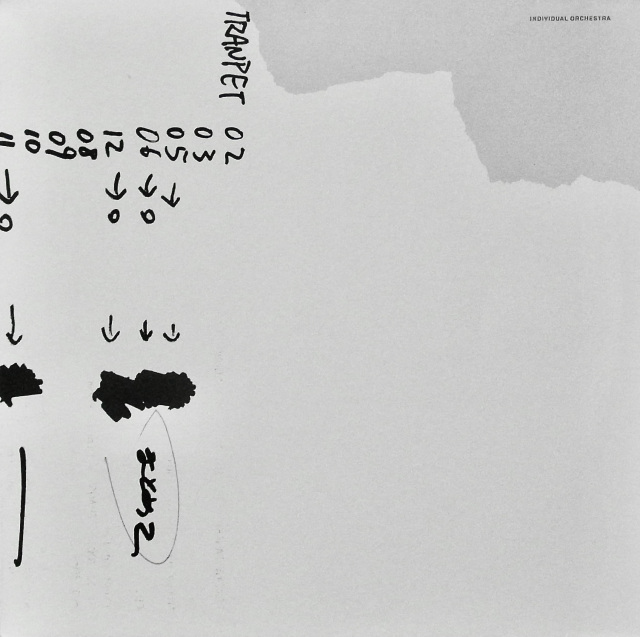 INDIVIDUAL ORCHESTRA
TRANPET
02
03
05 →
06 → 0 →
12 → 0 →
08
09
10
11 → 0 →